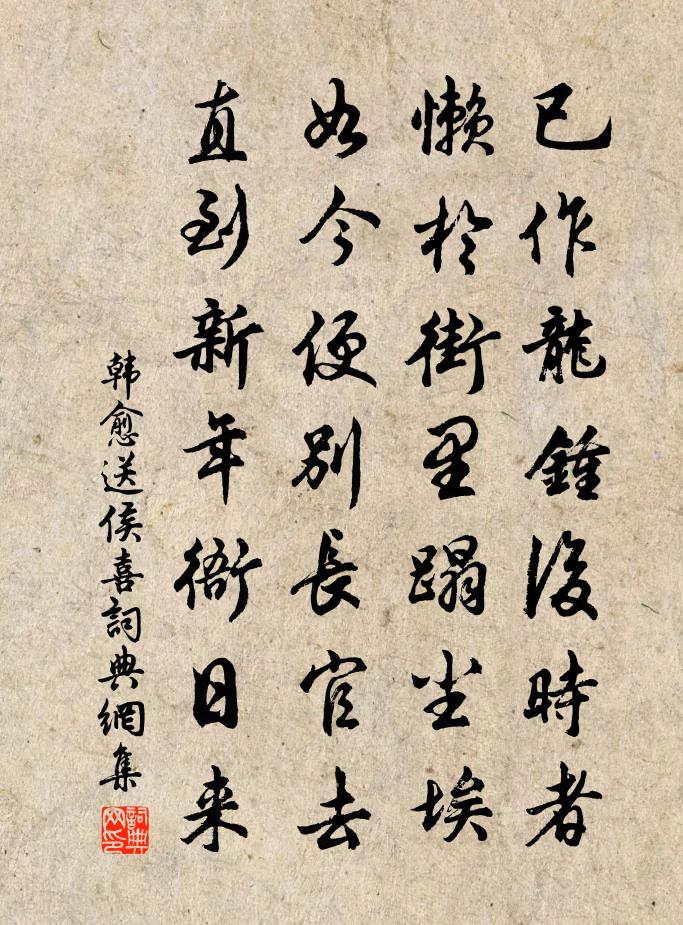 已作龍鍾後時者
懶於街里蹋尘埃
如今便别長官去
直到新年衙日来
韩愈送侯喜詞典網集
詞典网印